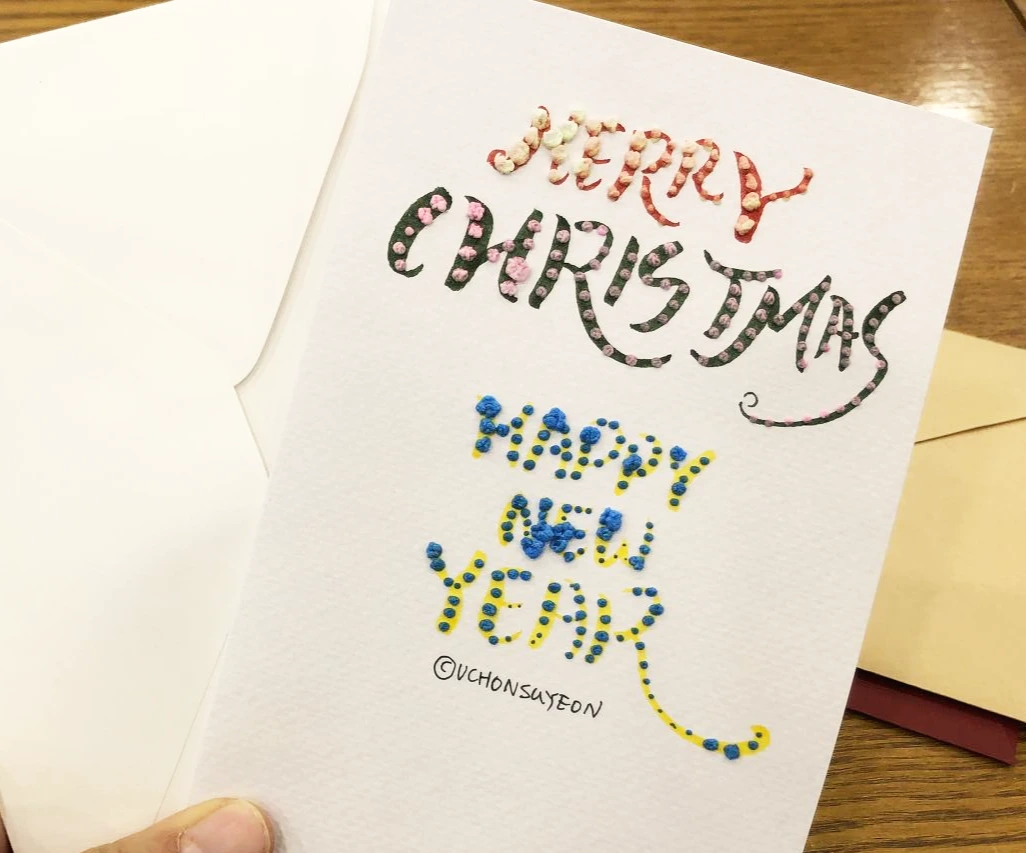 MERRY
CHRISTMAS
HAPPY
NEW
YEAR
©UCHONSUYEON